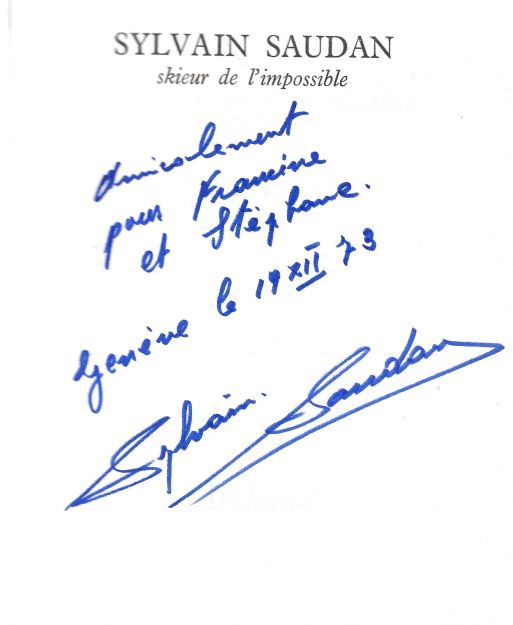 SYLVAIN SAUDAN
skieur de l'impossible
Amicalement
pour Francine
et Stéphane.
Genève le 19 XII 73
Sylvain. Saudan
Arthaud